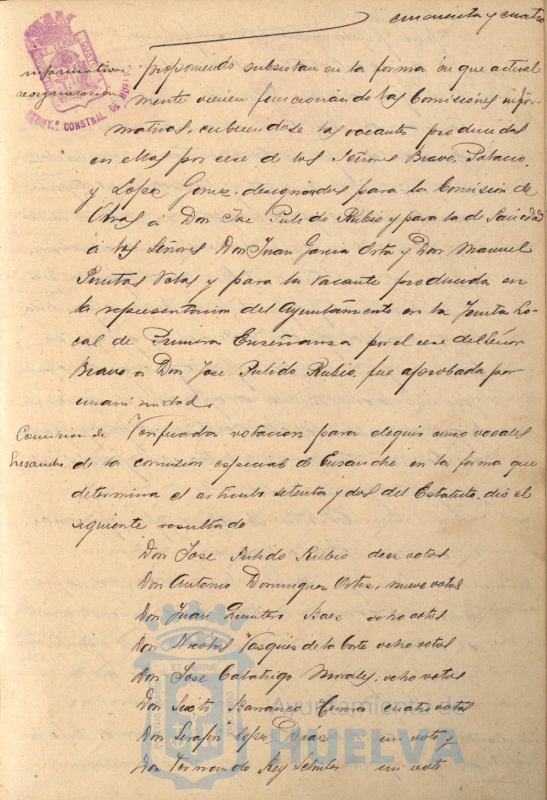 cincuenta y cuatro
informativas
reorganizacion
proponiendo subsistan en la forma en que actual
mente vienen funcionando las Comisiones infor-
mativas, cubriendose las vacantes producidas
en ellas por cese de los Señores Bravo, Palacio,
y Lopez Gomez, designandos para la Comision de
Obras á Don Jose Pulido Rubio y para la de Sanidad
á los Señores Don Juan Garcia Orta y Don Manuel
Velas y para la vacante producida en
la representacion del Ayuntamiento en la Junta Lo-
cal de Primera Enseñanza por el cese del Señor
Bravo á Don Jose Pulido Rubio, fue aprobada por
unanimidad.
Comision de
Ensanche.
Verificada votacion para elegir cinco vocales
de la comision especial de Ensanche en la forma que
determina el articulo setenta y dos del Estatuto, dió el
siguiente resultado
Don Jose Pulido Rubio doce votos
Don Antonio Dominguez Ortiz, nueve votos
Don Juan Quintero Baez ocho votos
Don Nicolas Vasques de la Corte ocho votos
Don Jose Calatrigo Morales, ocho votos
Don Barranco cuatro votos
Don Serafin Lopez Deaz un voto y
Don Fernando Rey Schules un voto
Ayuntamiento de
HUELVA